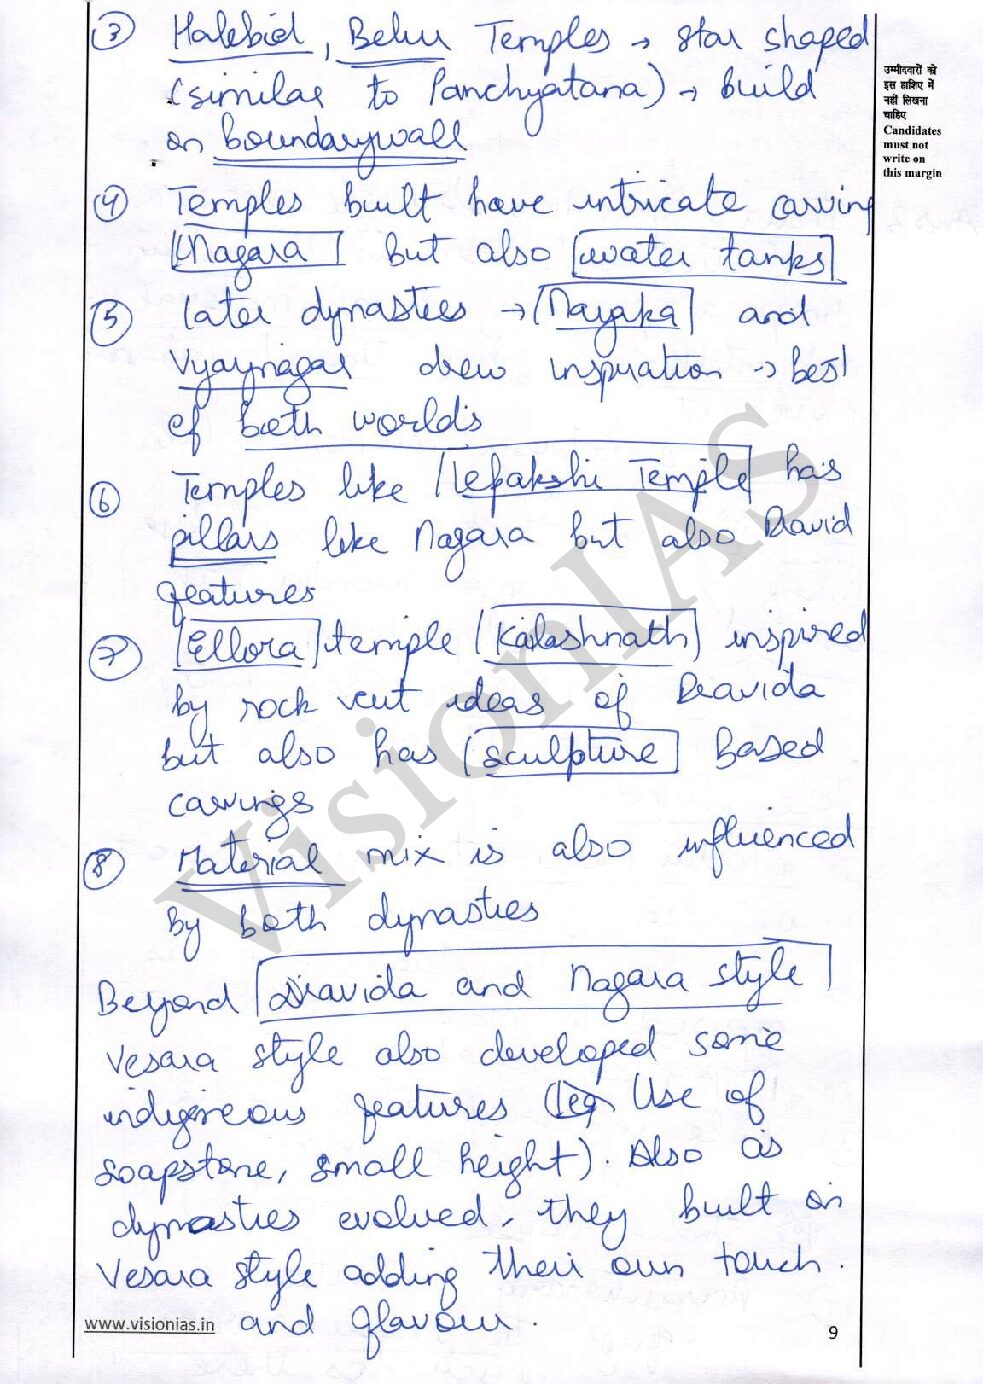 ③ Halebid, Belur Temples → star shaped
(similar to Panchyatana) → build
on boundarywall
④ Temples built have intricate carving
(Nagara) but also water tanks
⑤ later dynasties → Nayaka and
Vijaynagar drew inspiration → best
of both worlds
⑥ Temples like Lepakshi Temple has
pillars like Nagara but also Dravid
features
⑦ Ellora temple (Kailashnath) inspired
by rock cut ideas of Dravida
but also has sculpture Based
carvings
⑧ Material mix is also influenced
by both dynasties
Beyond Dravida and Nagara style
Vesara style also developed some
indigeneous features (eg Use of
soapstone, small height). Also as
dynasties evolved, they built on
Vesara style adding their own touch.
and flavour.
उम्मीदवारों को
इस हाशिए में
नहीं लिखना
चाहिए
Candidates
must not
write on
this margin
VisionIAS
www.visionias.in
9